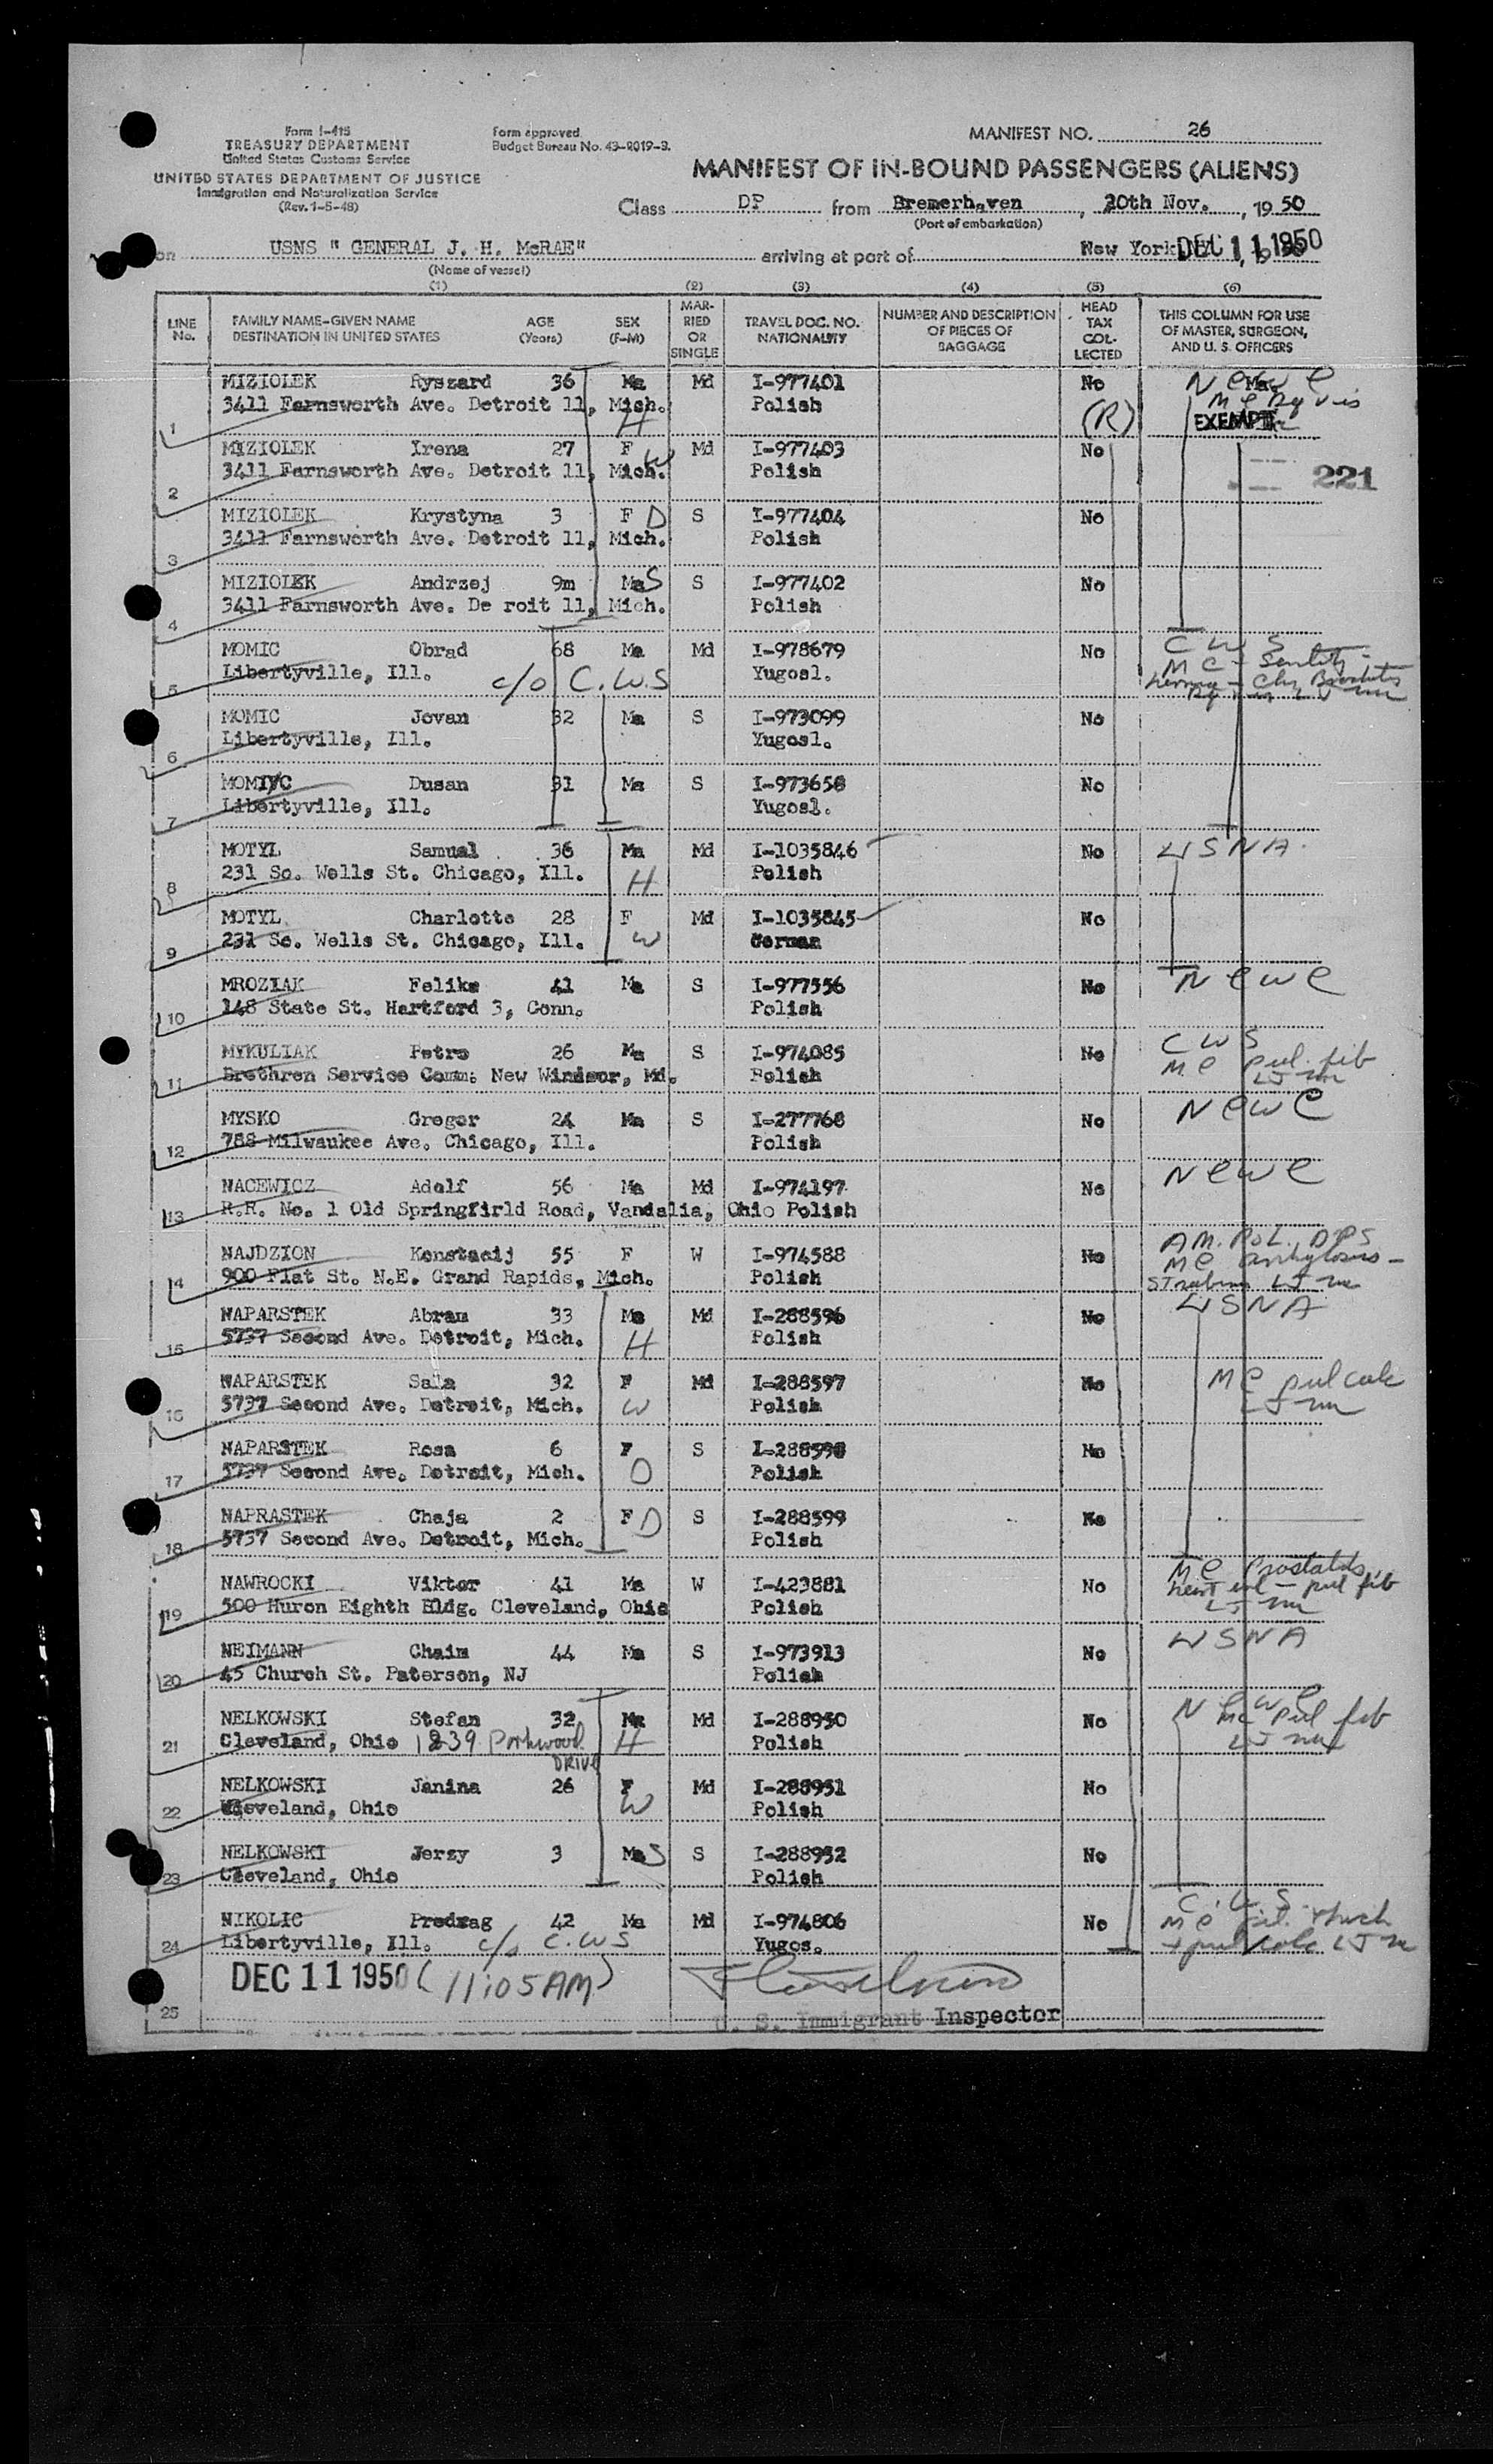 Form I-415
TREASURY DEPARTMENT
United States Customs Service
UNITED STATES DEPARTMENT OF JUSTICE
Immigration and Naturalization Service
(Rev. 1-5-48)
Form approved
Budget Bureau No. 43-R019-3.
MANIFEST NO. 26
MANIFEST OF IN-BOUND PASSENGERS (ALIENS)
Class DP from Bremerhaven, 20th Nov., 1950
(Port of embarkation)
on USNS " GENERAL J. H. McRAE" arriving at port of New York DEC 11 1950
(Name of vessel)
(1) (2) (3) (4) (5) (6)
LINE No. FAMILY NAME-GIVEN NAME DESTINATION IN UNITED STATES AGE (Years) SEX (F-M) MARRIED OR SINGLE TRAVEL DOC. NO. NATIONALITY NUMBER AND DESCRIPTION OF PIECES OF BAGGAGE HEAD TAX COLLECTED THIS COLUMN FOR USE OF MASTER, SURGEON, AND U. S. OFFICERS
MIZIOLEK Ryszard 36 Ma Md I-977401 No N e w e
1 3411 Farnsworth Ave. Detroit 11, Mich. H Polish (R) EXEMPT
MIZIOLEK Irena 27 F W Md I-977403 No
2 3411 Farnsworth Ave. Detroit 11, Mich. Polish 221
MIZIOLEK Krystyna 3 F D S I-977404 No
3 3411 Farnsworth Ave. Detroit 11, Mich. Polish
MIZIOLEK Andrzej 9m Ma S S I-977402 No
4 3411 Farnsworth Ave. De roit 11, Mich. Polish
MOMIC Obrad 68 Ma Md I-978679 No C W S
5 Libertyville, Ill. c/o C.W.S Yugosl. M C
MOMIC Jovan 32 Ma S I-973099 No
6 Libertyville, Ill. Yugosl.
MOMIC Dusan 31 Ma S I-973658 No
7 Libertyville, Ill. Yugosl.
MOTYL Samual 36 Ma Md I-1035846 No USNA
8 231 So. Wells St. Chicago, Ill. H Polish
MOTYL Charlotte 28 F Md I-1035845 No
9 231 So. Wells St. Chicago, Ill. W German
MROZIAK Feliks 41 Ma S I-977556 No N e w e
10 148 State St. Hartford 3, Conn. Polish
MYKULIAK Petro 26 Ma S I-974085 No C W S
11 Brethren Service Comm. New Windsor, Md. Polish M C pul. fib
MYSKO Gregor 24 Ma S I-277768 No N e w e
12 788 Milwaukee Ave. Chicago, Ill. Polish
NACEWICZ Adolf 56 Ma Md I-974197 No N e w e
13 R.R. No. 1 Old Springfirld Road, Vandalia, Ohio Polish
NAJDZION Konstacij 55 F W I-974588 No AM. POL. DPS
14 900 Flat St. N.E. Grand Rapids, Mich. Polish
NAPARSTEK Abram 33 Ma Md I-288596 No USNA
15 5737 Second Ave. Detroit, Mich. H Polish
NAPARSTEK Sala 32 F Md I-288597 No M C pul calc
16 5737 Second Ave. Detroit, Mich. W Polish
NAPARSTEK Rosa 6 F S I-288598 No
17 5737 Second Ave. Detroit, Mich. D Polish
NAPRASTEK Chaja 2 F D S I-288599 No
18 5737 Second Ave. Detroit, Mich. Polish
NAWROCKI Viktor 41 Ma W I-423881 No M C
19 500 Huron Eighth Bldg. Cleveland, Ohio Polish pul fib
NEIMANN Chaim 44 Ma S I-973913 No USNA
20 45 Church St. Paterson, NJ Polish
NELKOWSKI Stefan 32 Ma Md I-288950 No N e w e
21 Cleveland, Ohio 1239 Parkwood DRIVE H Polish MC pul fib
NELKOWSKI Janina 26 F Md I-288951 No
22 Cleveland, Ohio W Polish
NELKOWSKI Jerzy 3 Ma S S I-288952 No
23 Cleveland, Ohio Polish
NIKOLIC Predrag 42 Ma Md I-974806 No C.W.S.
24 Libertyville, Ill. c/o C.W.S Yugos.
DEC 11 1950 (11:05AM)
25 U. S. Immigrant Inspector